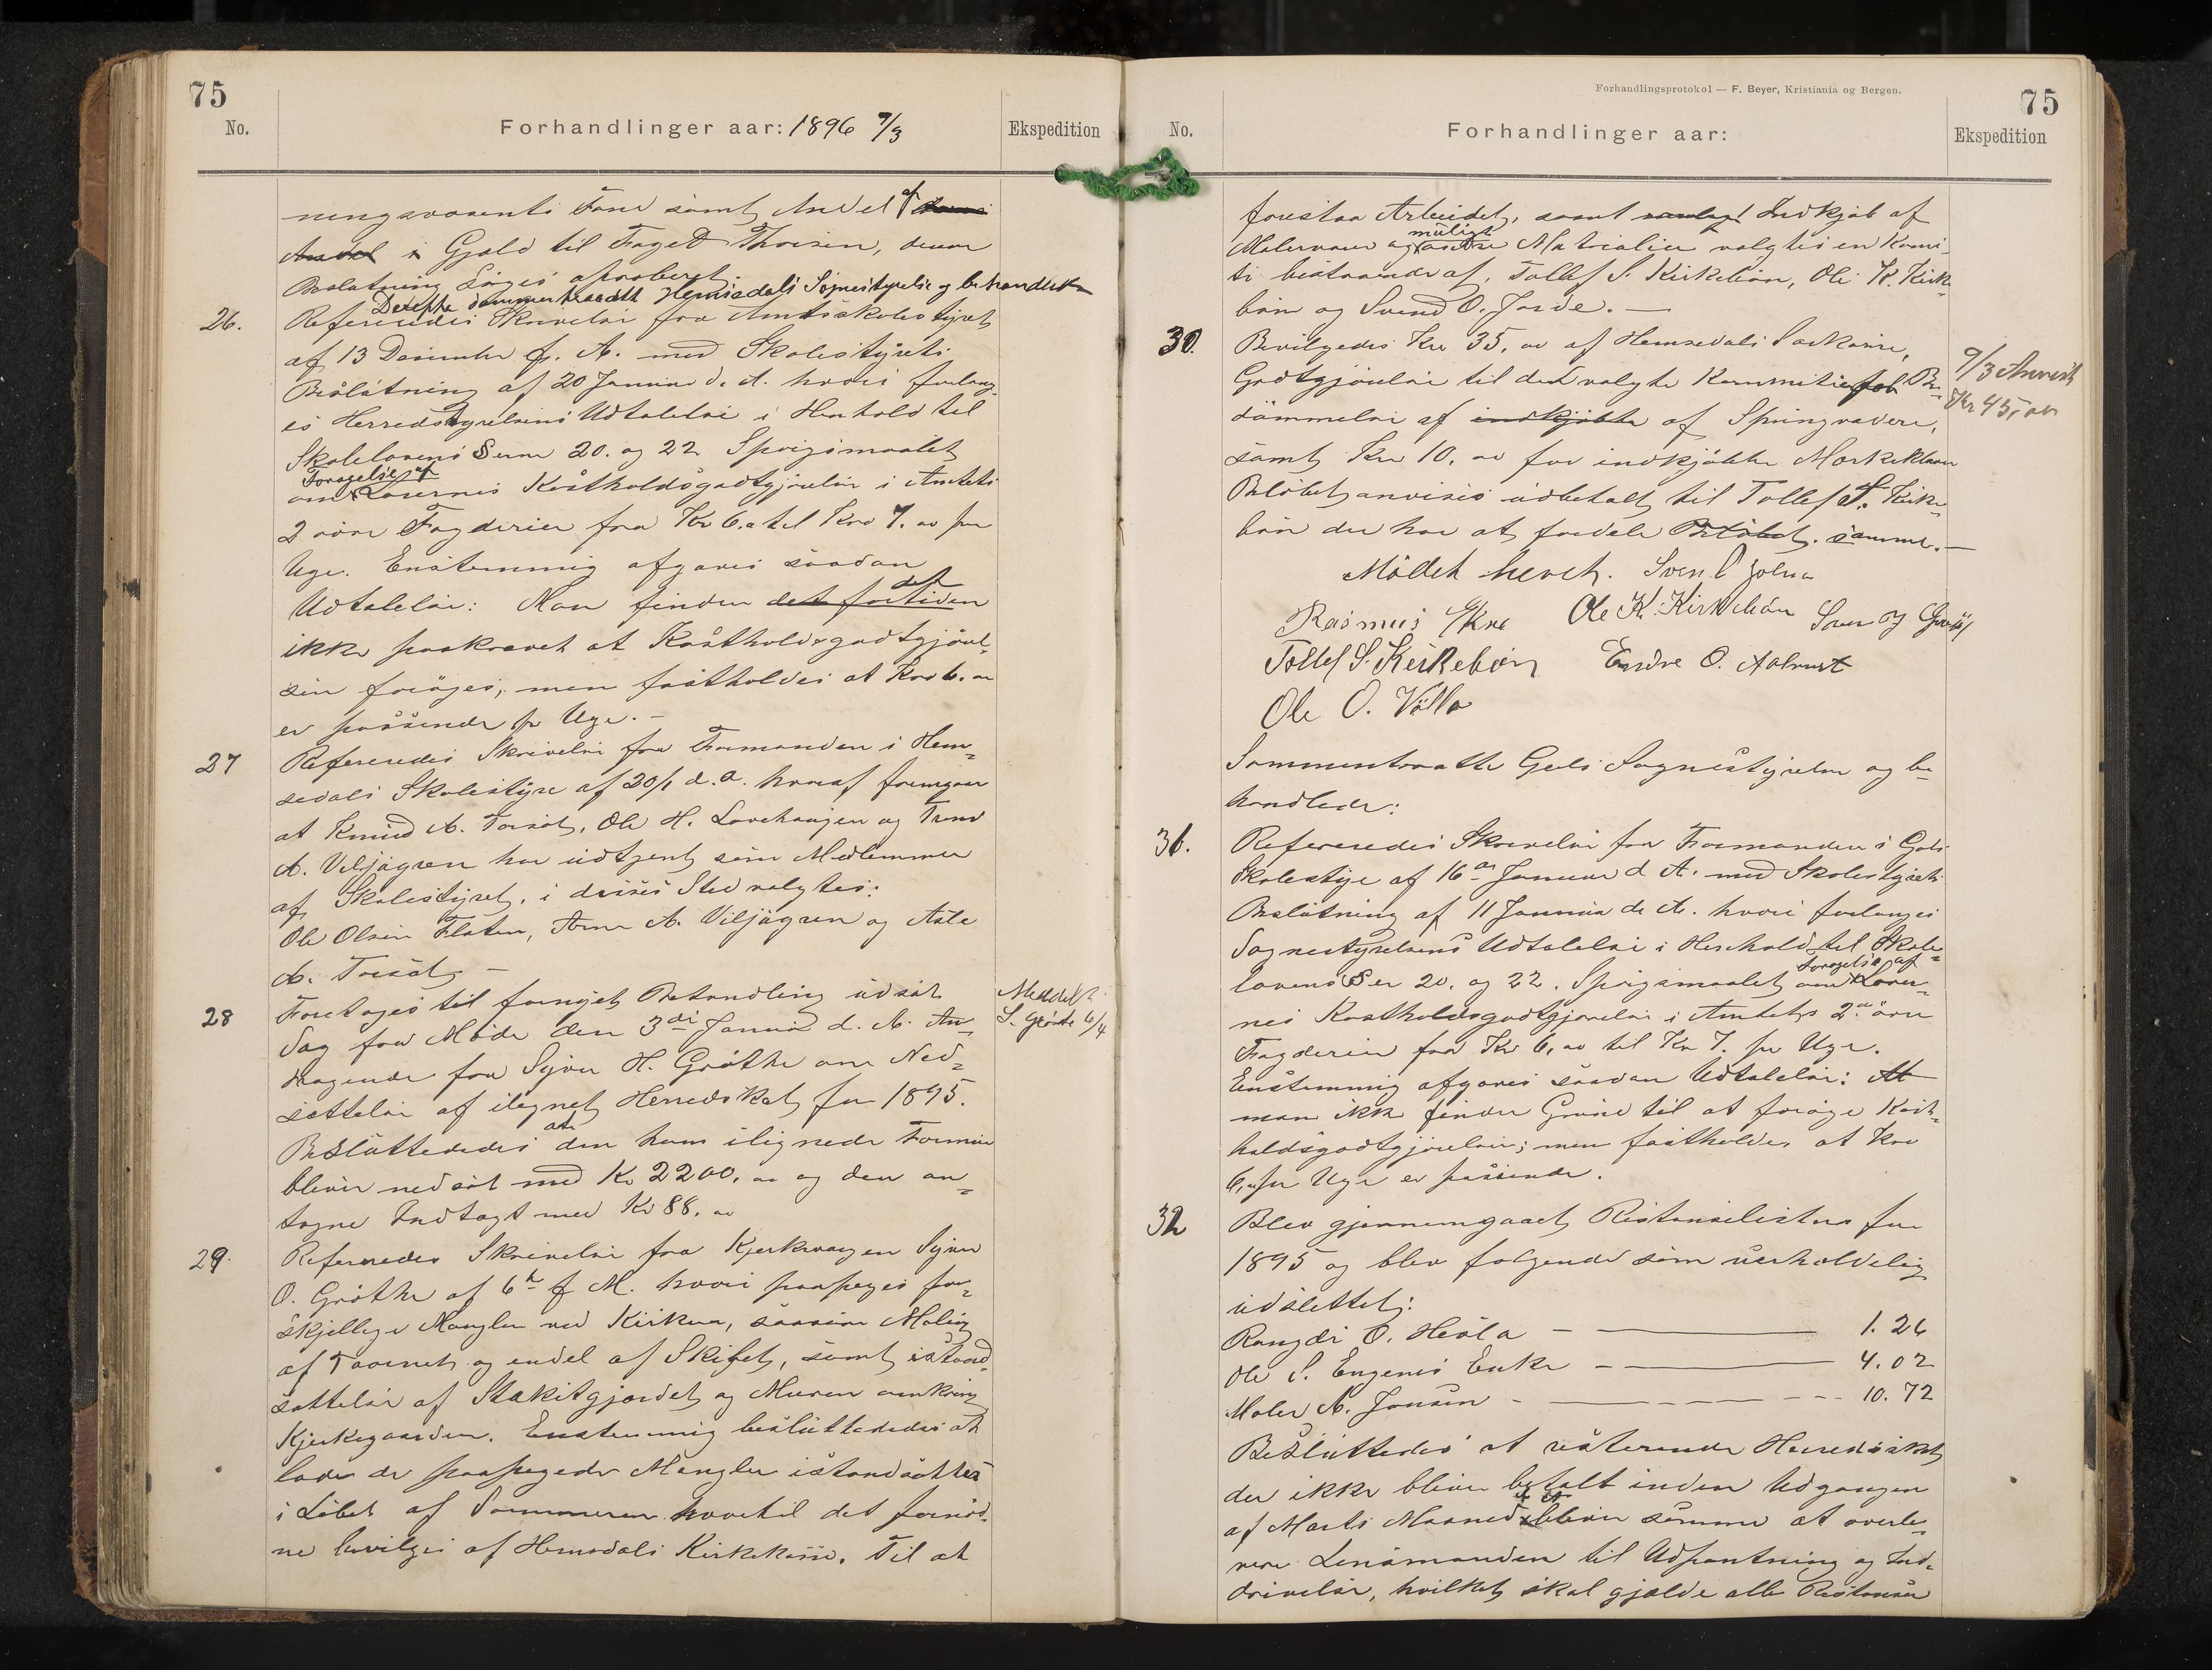 75
No.
Forhandlinger aar: 1896 7/3
Ekspedition
ningsvæsents Fond samt Andel af
Andel i Gjæld til Foged Thoresen, denne
Beslutning søges approberet.
Derefter sammentraadte Hemsedals Sognestyrelse og behandlede
26.
Refereredes Skrivelse fra Amtsskolestyret
af 13 December f. A. med Skolestyrets
Beslutning af 20 Januar d. A. hvori forlang-
es Herredstyrelsens Udtalelse i Henhold til
Skolelovens §erne 20. og 22 Spørgsmaalet
om Forøgelse af Lærernes Kostholdsgodtgjørelse i Amtets
2 øvre Fogderier fra Kr 6.00 til Kro 7.00 pr
Uge. Enstemmig afgaves saadan
Udtalelse: Man finder det fortiden det
ikke paakrævet at Kostholdsgodtgjørel-
sen forøges, men fastholdes at Kro 6.00
er passende pr Uge. -
27
Refereredes Skrivelse fra Formanden i Hem-
sedals Skolestyre af 20/1 d.a. hvoraf fremgaar
at Knud A. Torsæt, Ole H. Lovehaugen og Trond
A. Veljagren har udtjent som Medlemmer
af Skolestyret, i disses Sted valgtes:
Ole Olsen Flaten, Arne A. Viljugren og Asle
A. Torset -
28
Foretoges til fornyet Behandling udsat
Sag fra Møde den 3di Januar d. A. An-
dragende fra Syver H. Grøthe om Ned-
sættelse af ilignet Herredskat for 1895.
Besluttededes at den ham ilignede Formue
bliver nedsat med Kr 2200.00 og den an-
tagne Indtægt med Kr 88.00
Meddelt
S. Grøthe 6/4
29.
Refereredes Skrivelse fra Kjerkeværgen Syver
O. Grøthe af 6te f M. hvori paapeges for-
skjellige Mangler ved Kirken, saasom Maling
af Taarnet og endel af Skibet, samt istand-
sættelse af Stakitgjærdet og Muren omkring
Kjerkegaarden. Enstemmig besluttededes at
lade de paapegede Mangler istandsættes
i Løbet af Sommeren hvortil det fornød-
ne bevilges af Hemsedals Kirkekasse. Til at
Forhandlingsprotokol — F. Beyer, Kristiania og Bergen.
75
No.
Forhandlinger aar:
Ekspedition
forestaa Arbeidet, samt Indkjøb af
Malervarer og muligt andre Materialier valgtes en Komi-
te bestaaende af, Tollef S. Kirkebøn, Ole K. Kirke-
bøn og Svend O. Jorde. -
30.
Bevilgedes Kro 35,00 af Hemsedals Sokasse,
Godtgjørelse til den valgte Kommitie for Be-
dømmelse af indkjøbte af Springvadere,
samt Kro 10.00 for indkjøbte Markeklaver
Beløbet anvises udbetalt til Tollef S. Kirke-
bøn der har at fordele Beløbet. samme. -
9/3 Anvist
Kr 45,00
Mødet hevet.
Rasmus Ekre
Ole K. Kirkebøn
Tollef S. Kirkebøn
Endre O. Aalrust
Ole O. Vølla
Sammentraadte Gols Sognestyrelse og be-
handlede:
31.
Refereredes Skrivelse fra Formanden i Gols
Skolestyre af 16de Januar d A. med Skolestyrets
Beslutning af 11 Januar d. A. hvori forlanges
Sognestyrelsens Udtalelse i Henhold til Skole-
lovens §er 20. og 22. Spørgsmaalet om Forøgelse af Lærer-
nes Kostholdsgodtgjørelse i Amtets 2de øvre
Fogderier fra Kr 6,00 til Kr 7. pr Uge.
Enstemmig afgaves saadan Udtalelse: At
man ikke finder Grund til at forøge Kost-
holdsgodtgjørelsen; men fastholder at Kro
6,00 pr Uge er passende.
32
Blev gjennemgaaet Restanselisterne for
1895 og blev følgende som uerholdelig
udslettet:
Rangdi O. Hesla - 1.26
Ole S. Engenes Enke - 4.02
Maler A. Jonsen - 10.72
Besluttedes at resterende Herredsskat
der ikke bliver betalt inden Udgangen
af Marts Maaned d. A. bliver samme at overle-
vere Lensmanden til Udpantning og Ind-
drivelse, hvilket skal gjælde alle Restanser